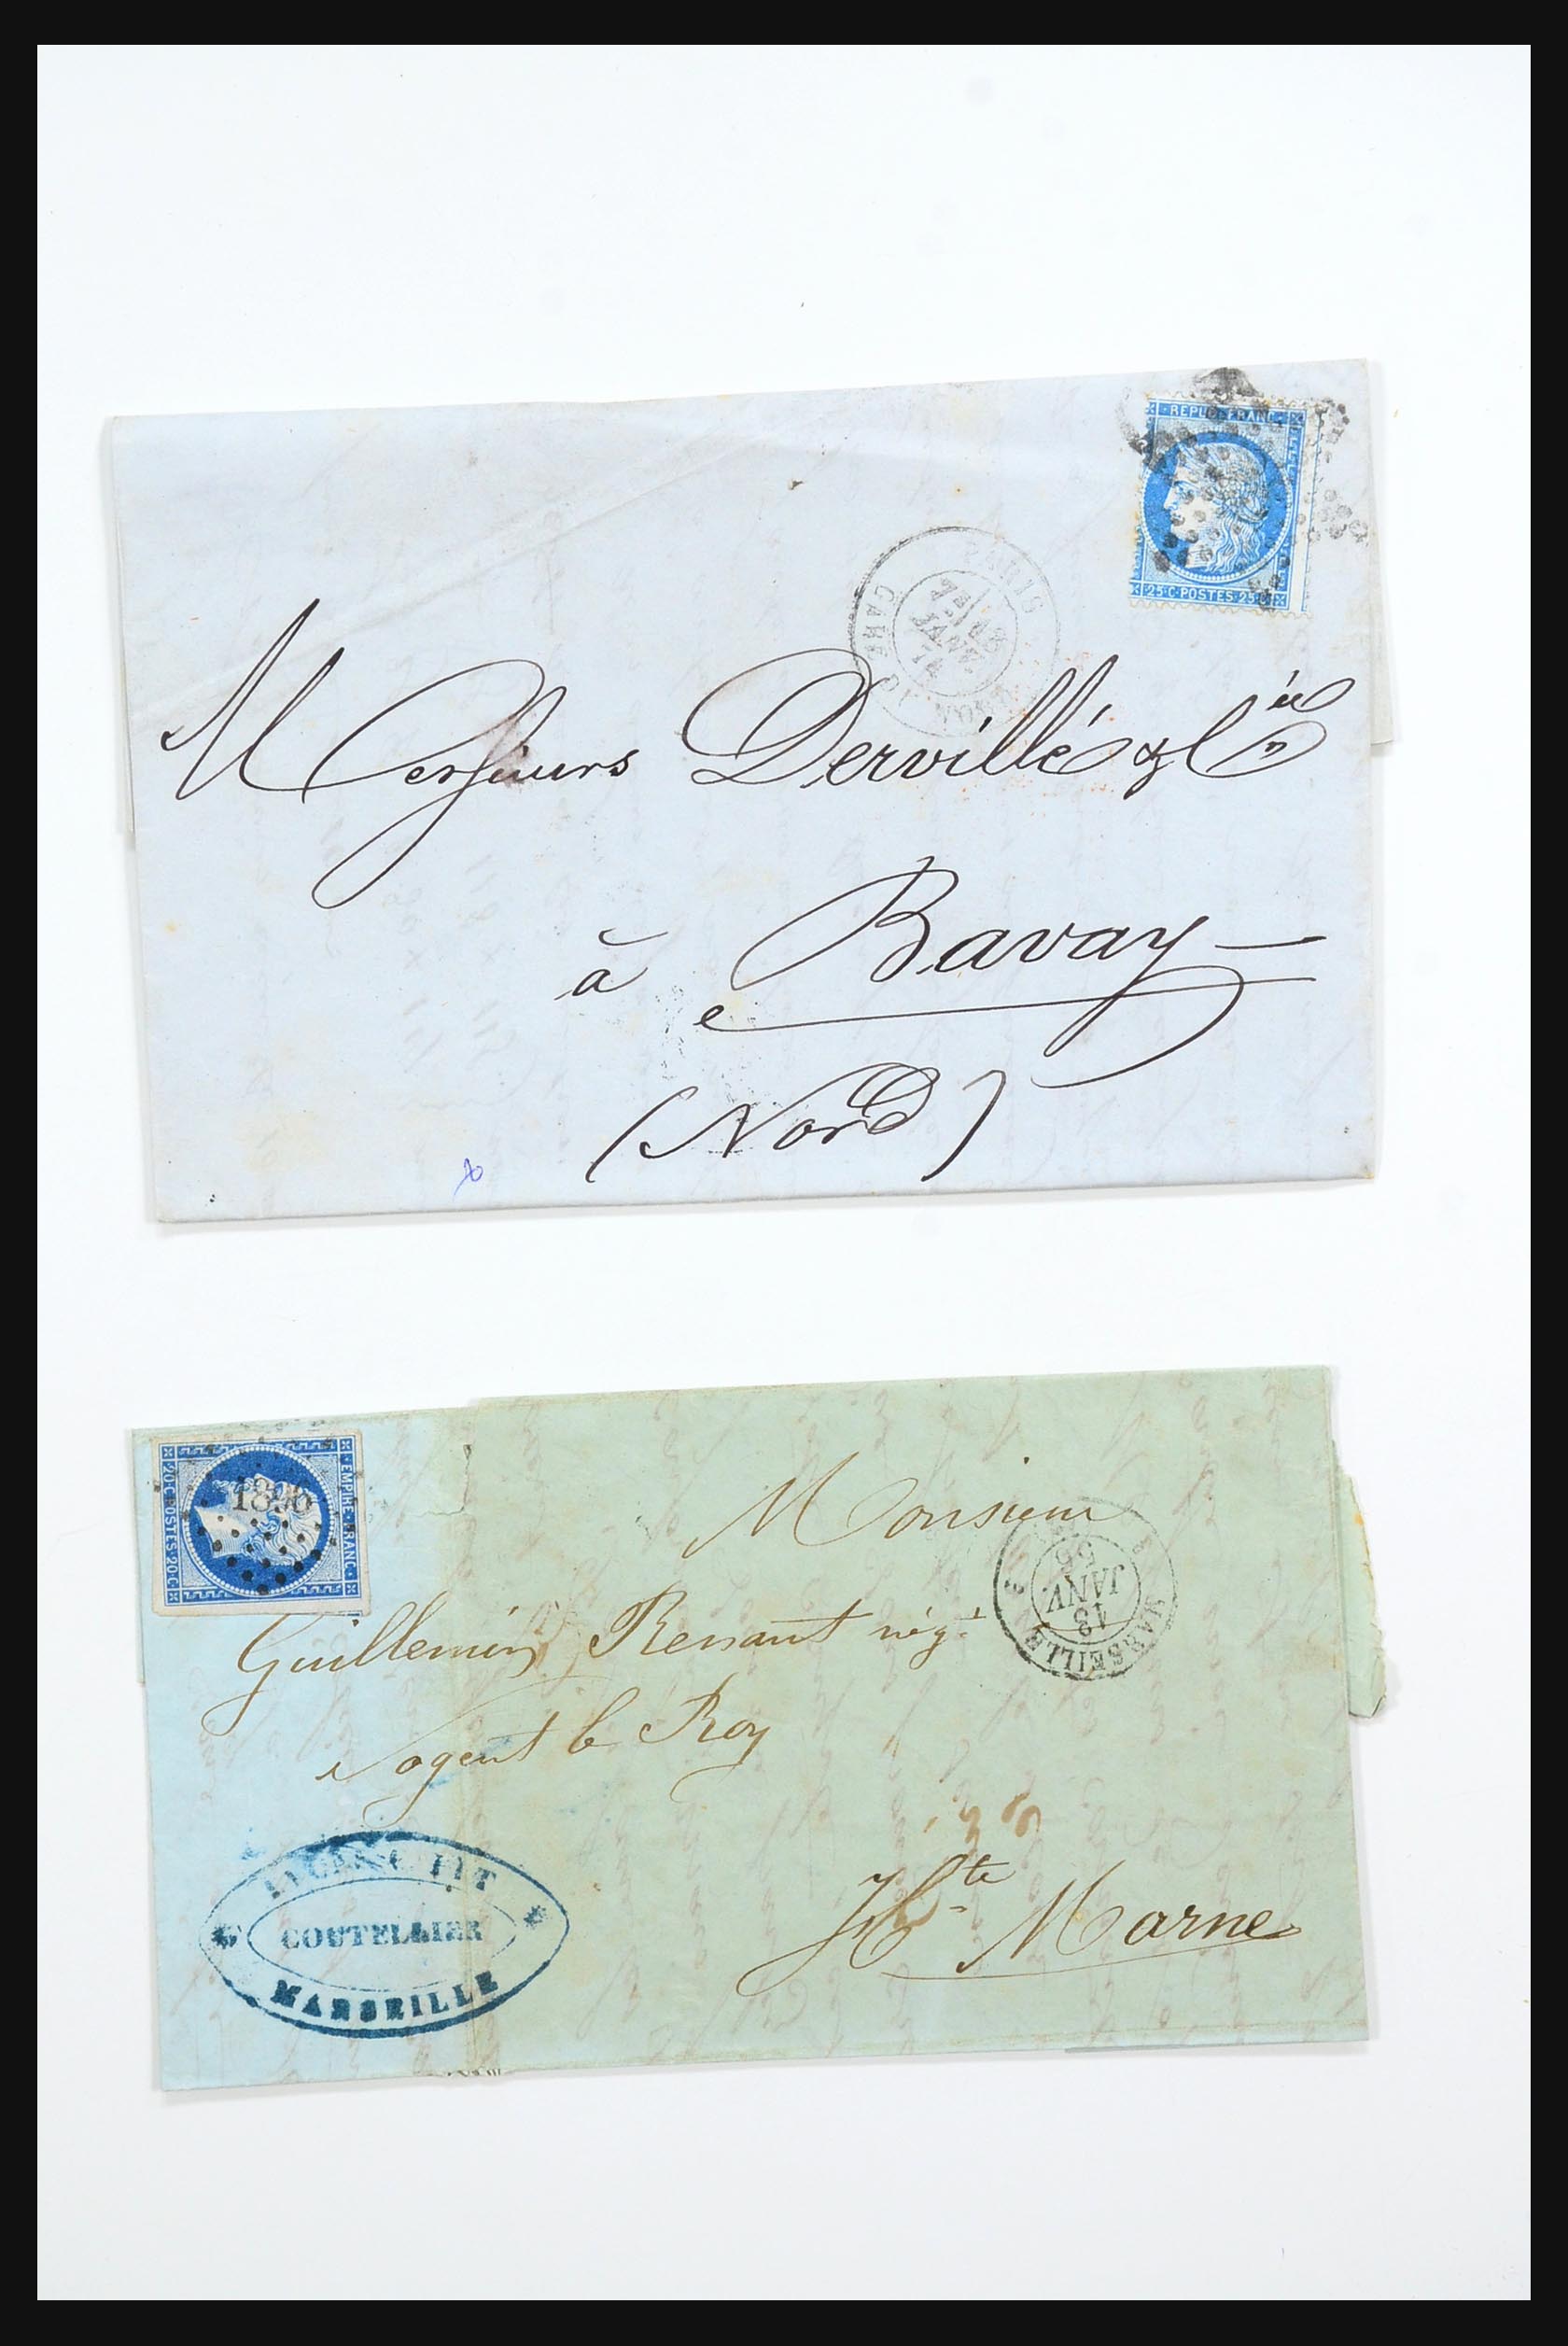 REPUB·FRANC·
25·C·POSTES·25·C
PARIS
GARE
JANV.
74
Messieurs Dervillé & Cie
à Bavay
(Nord)
·20·C·POSTES·20·C·
EMPIRE·FRANC·
1896
Monsieur
MARSEILLE
13
JANV.
Guillemin Renaut négt
Nogent le Roy
Hte Marne
COUTELLIER
MARSEILLE